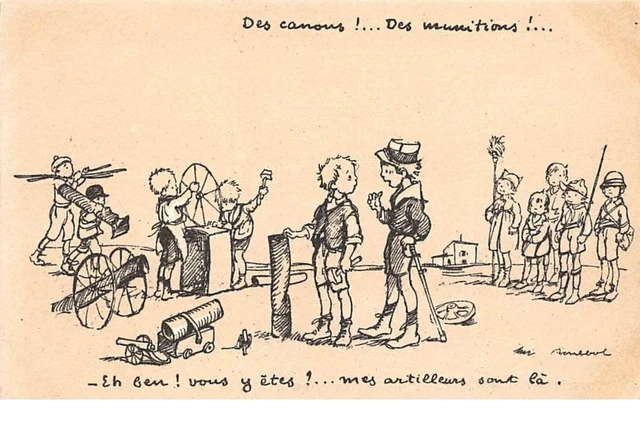 Des canons !... Des munitions !...
– Eh ben ! vous y êtes ?... mes artilleurs sont là .